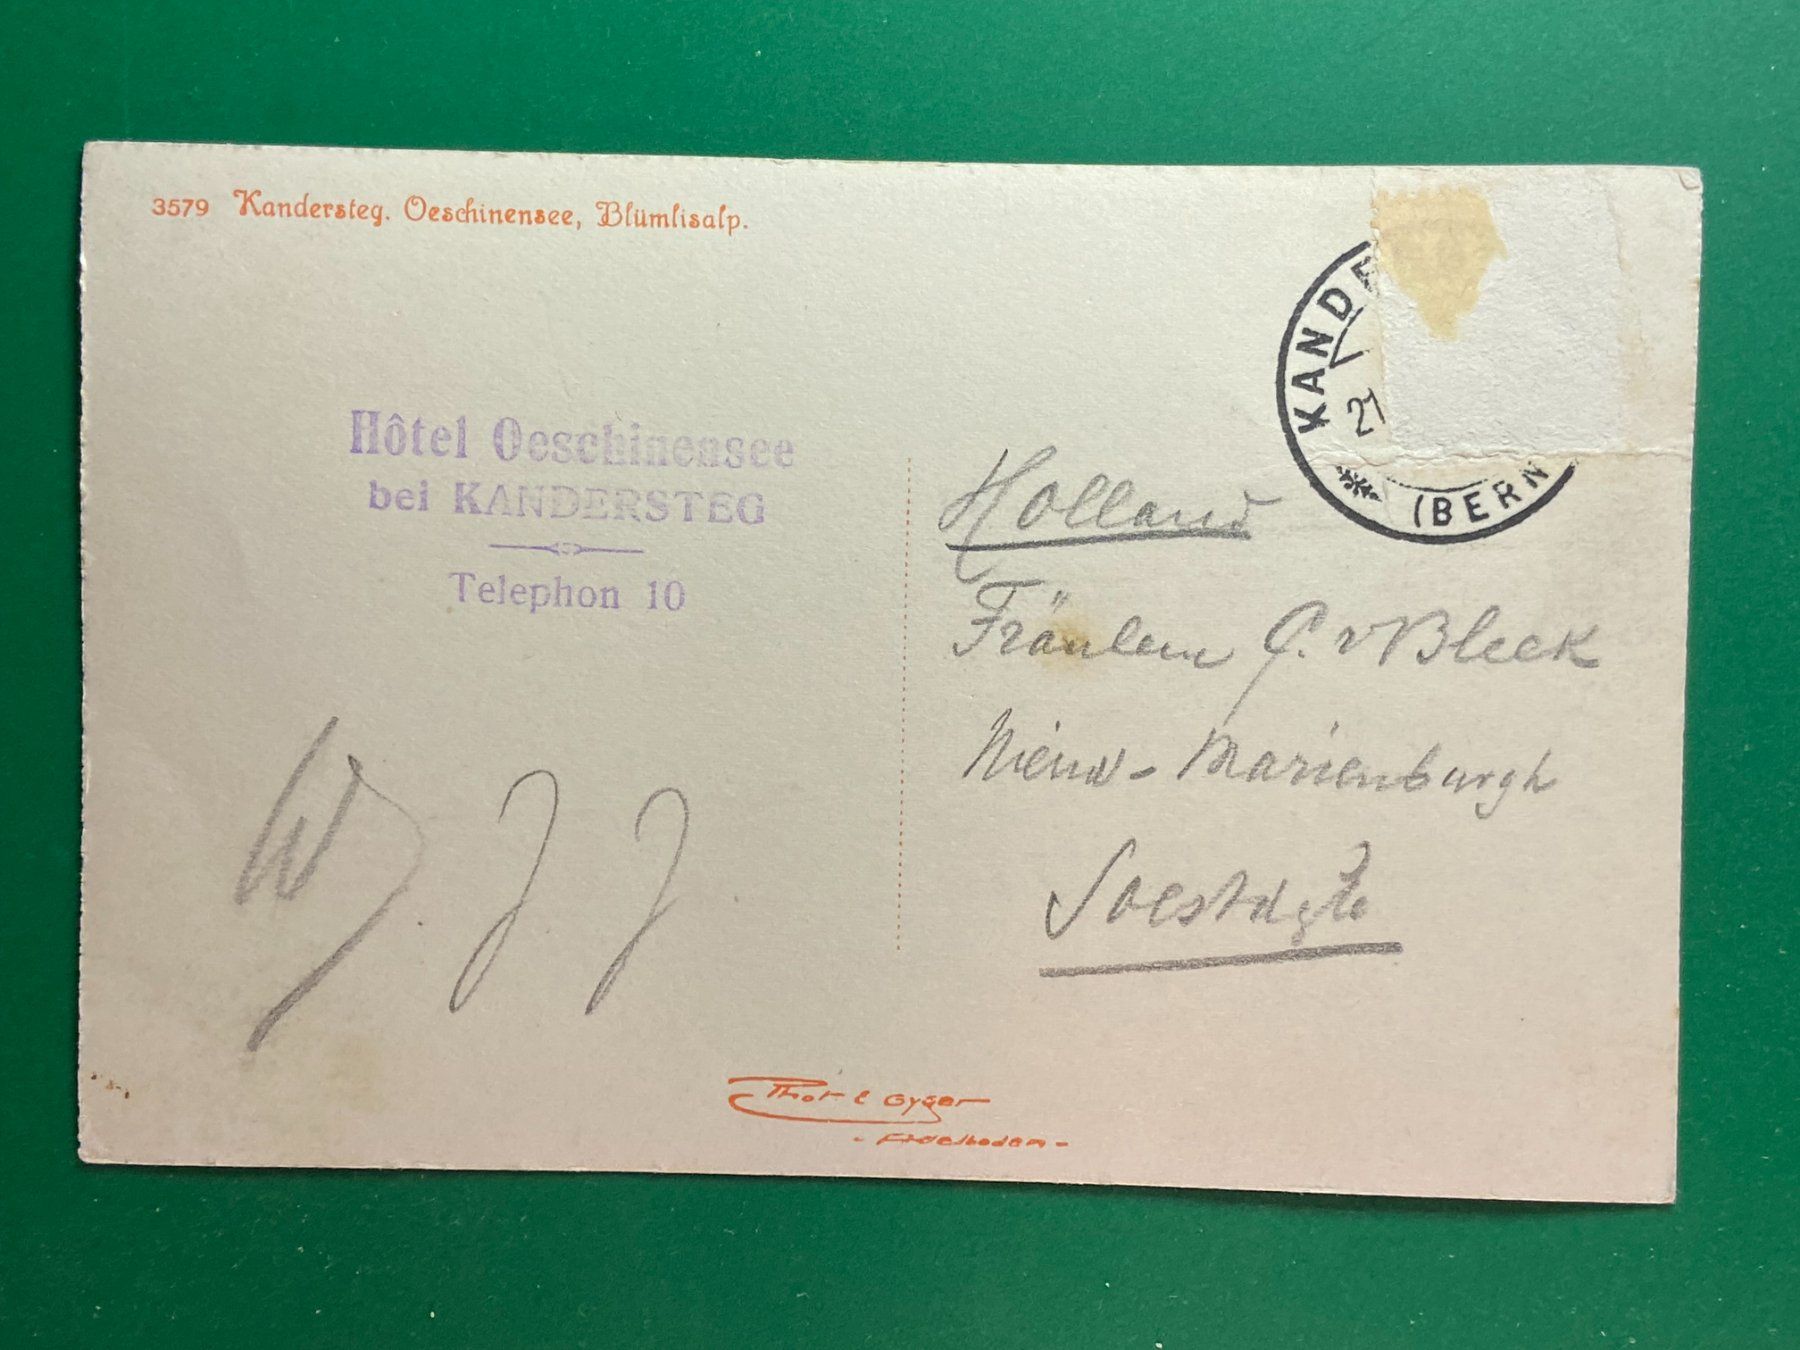 3579 Kandersteg. Oeschinensee, Blümlisalp.
KANDE
21
(BERN
Hôtel Oeschinensee
bei KANDERSTEG
Telephon 10
Holland
Fräulein C. v Bleek
Nieuw-Marienburgh
Soestdyk
W. J. J.
Thor E Gyger
- Adelboden -